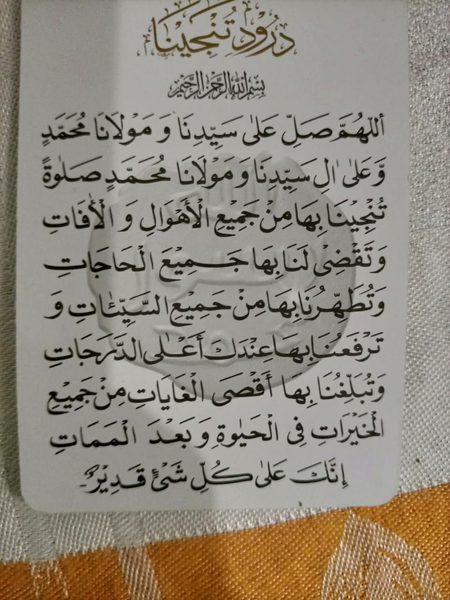 درودِ تُنجینا
بِسْمِ اللهِ الرَّحْمٰنِ الرَّحِيْمِ
اَللّٰهُمَّ صَلِّ عَلٰى سَيِّدِنَا وَ مَوْلَانَا مُحَمَّدٍ
وَّعَلٰى اٰلِ سَيِّدِنَا وَ مَوْلَانَا مُحَمَّدٍ صَلٰوةً
تُنْجِيْنَا بِهَا مِنْ جَمِيْعِ الْاَهْوَالِ وَ الْاٰفَاتِ
وَ تَقْضِىْ لَنَا بِهَا جَمِيْعَ الْحَاجَاتِ
وَ تُطَهِّرُنَا بِهَا مِنْ جَمِيْعِ السَّيِّئٰاتِ وَ
تَرْفَعُنَا بِهَا عِنْدَكَ اَعْلَى الدَّرَجَاتِ
وَ تُبَلِّغُنَا بِهَا اَقْصَى الْغَايَاتِ مِنْ جَمِيْعِ
الْخَيْرَاتِ فِى الْحَيٰوةِ وَ بَعْدَ الْمَمَاتِ
اِنَّكَ عَلٰى كُلِّ شَىْءٍ قَدِيْرٌ۔